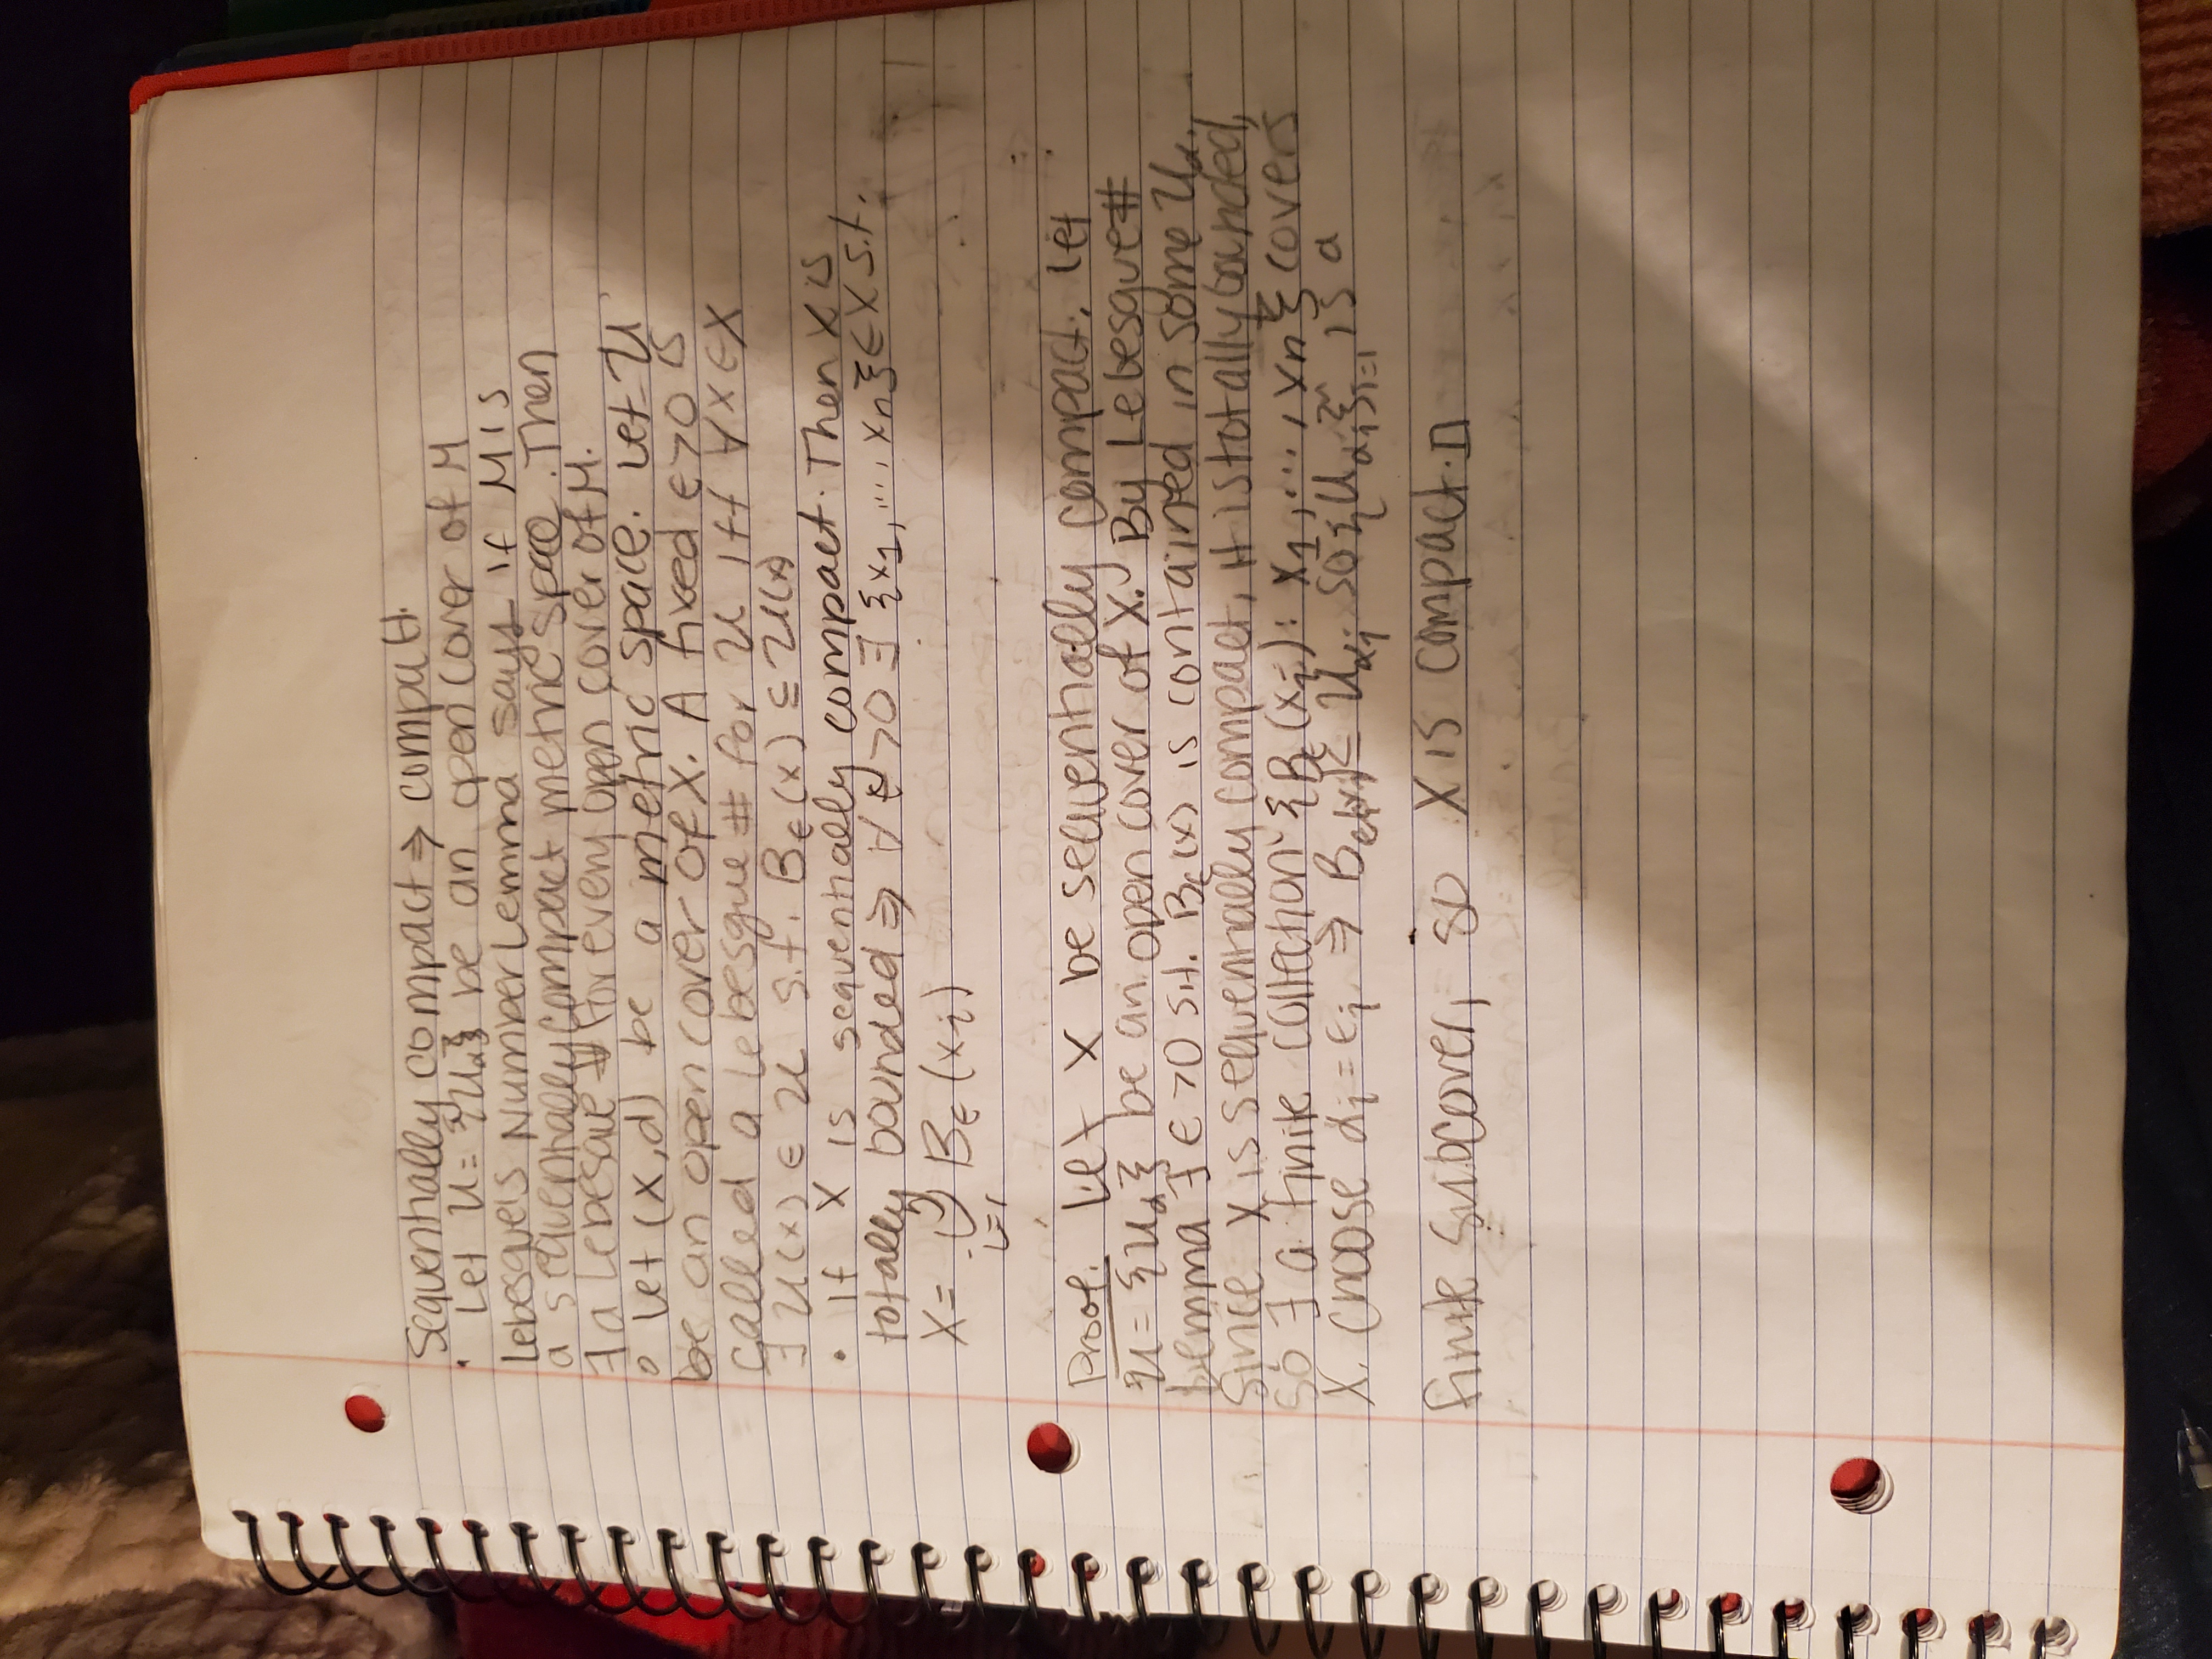 Sequentially compact ⇒ compact.
• Let U = {Uα} be an open cover of M
Lebesgue's Number Lemma says if M is
a sequentially compact metric space. Then
∃ a Lebesgue # for every open cover of M.
• Let (X,d) be a metric space. Let U
be an open cover of X. A fixed ϵ>0 is
called a Lebesgue # for U iff ∀x∈X
∃ U(x) ∈ U s.t. Bϵ(x) ⊆ U(x)
• If X is sequentially compact. Then X is
totally bounded ⇒ ∀ ϵ>0 ∃ {x1, ..., xn}∈X s.t.
X = ∪ Bϵ(xi)
i=1
Proof. Let X be sequentially compact. Let
U = {Uα} be an open cover of X. By Lebesgue #
Lemma ∃ ϵ>0 s.t. Bϵ(x) is contained in some Uα.
Since X is sequentially compact, it is totally bounded,
so ∃ a finite collection {Bϵ(xi): x1, ..., xn} covers
X. Choose αi = ϵi ⇒ Bϵi(xi) ⊆ Uαi so {Uαi}ⁿi=1 is a
finite subcover, so X is compact. □